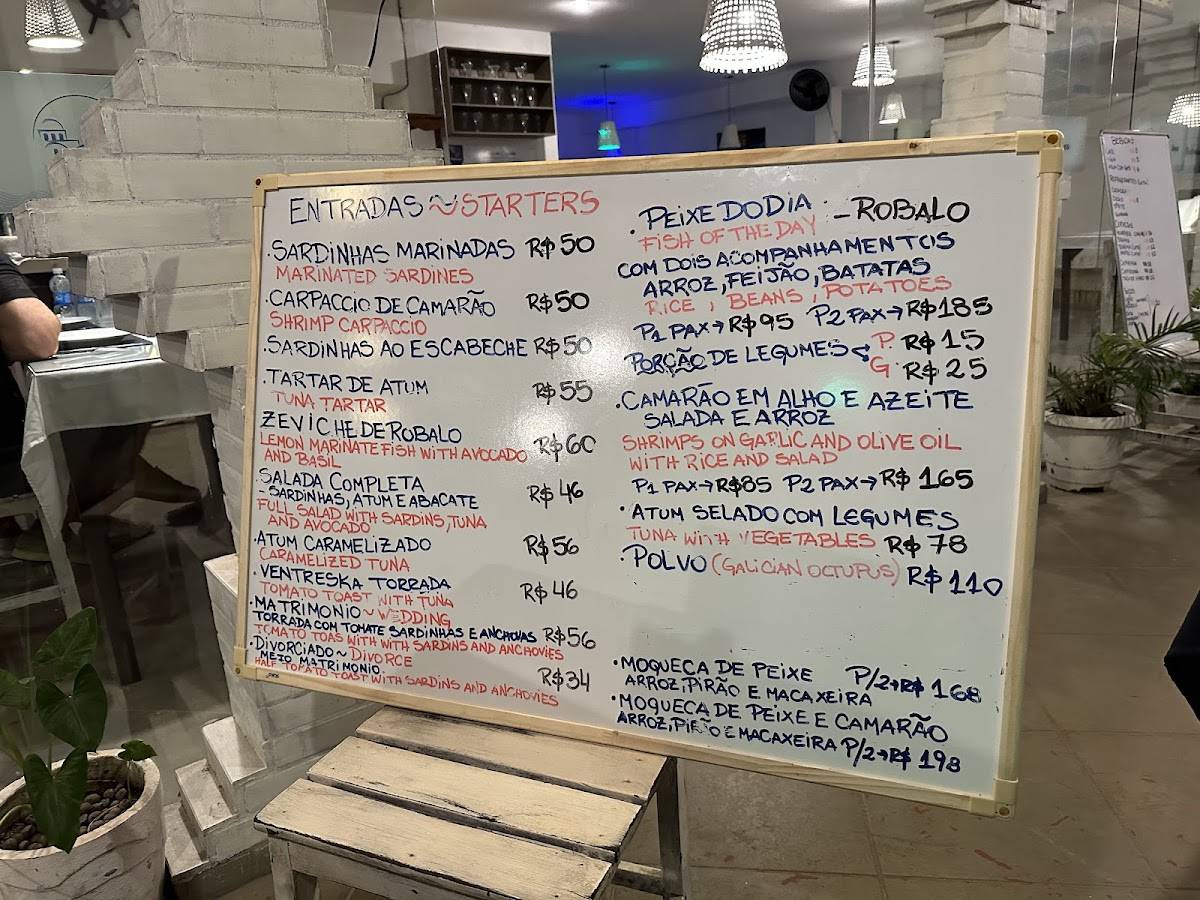 ENTRADAS ~ STARTERS
. SARDINHAS MARINADAS R$ 50
MARINATED SARDINES
. CARPACCIO DE CAMARÃO R$ 50
SHRIMP CARPACCIO
. SARDINHAS AO ESCABECHE R$ 50
. TARTAR DE ATUM R$ 55
TUNA TARTAR
ZEVICHE DE ROBALO
LEMON MARINATE FISH WITH AVOCADO R$ 60
AND BASIL
SALADA COMPLETA
- SARDINHAS, ATUM E ABACATE R$ 46
FULL SALAD WITH SARDINS, TUNA
AND AVOCADO
. ATUM CARAMELIZADO R$ 56
CARAMELIZED TUNA
. VENTRESKA TORRADA
TOMATO TOAST WITH TUNA R$ 46
. MATRIMONIO ~ WEDDING
TORRADA COM TOMATE SARDINHAS E ANCHOVAS R$ 56
TOMATO TOAS WITH WITH SARDINS AND ANCHOVIES
. DIVORCIADO ~ DIVORCE
MEZO MATRIMONIO R$ 34
HALF TOMATO TOAST WITH SARDINS AND ANCHOVIES
. PEIXE DO DIA - ROBALO
FISH OF THE DAY
COM DOIS ACOMPANHAMENTOS
ARROZ, FEIJÃO, BATATAS
RICE, BEANS, POTATOES
P1 PAX → R$ 95 P2 PAX → R$ 185
PORÇÃO DE LEGUMES P. R$ 15
G. R$ 25
. CAMARÃO EM ALHO E AZEITE
SALADA E ARROZ
SHRIMPS ON GARLIC AND OLIVE OIL
WITH RICE AND SALAD
P1 PAX → R$85 P2 PAX → R$ 165
. ATUM SELADO COM LEGUMES
TUNA WITH VEGETABLES R$ 78
. POLVO (GALICIAN OCTUPUS) R$ 110
. MOQUECA DE PEIXE P/2 → R$ 168
ARROZ, PIRÃO E MACAXEIRA
. MOQUECA DE PEIXE E CAMARÃO
ARROZ, PIRÃO E MACAXEIRA P/2 → R$ 198